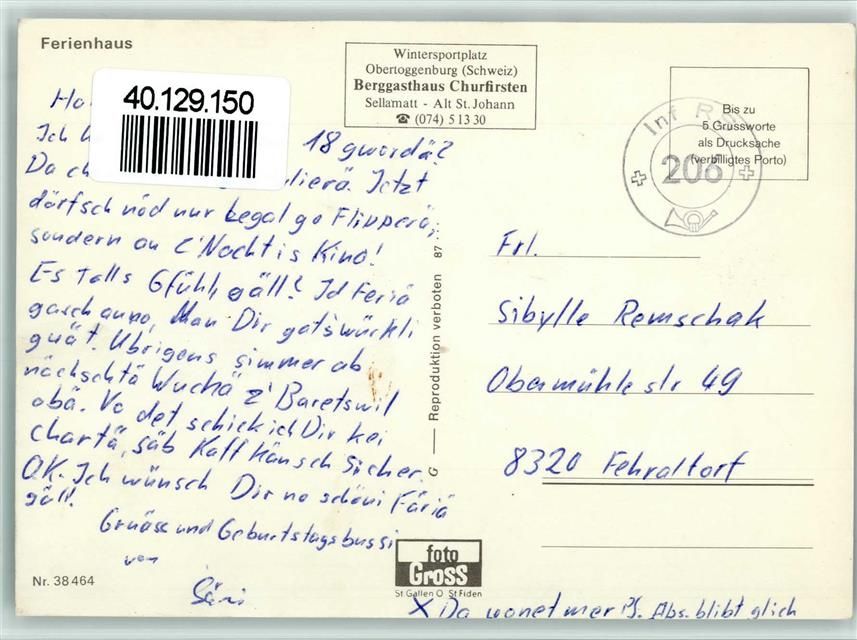 Ferienhaus
Wintersportplatz
Obertoggenburg (Schweiz)
Berggasthaus Churfirsten
Sellamatt - Alt St. Johann
☎ (074) 5 13 30
Bis zu
5 Grussworte
als Drucksache
(verbilligtes Porto)
Inf R
206
40.129.150
Ich 18 gwordä?
Da ch lierä. Jetzt
dörfsch nöd nur legal go Flipperä,
sondern au z'Nacht is Kino!
Es talls Gfühl gäll? Id Feriä
gasch au no, Dir gots würkli
guät. Übrigens simmer ab
nächschtä Wuchä z' Baretswil
obä. Vo det schick ich Dir kei
chartä, säb Kaff känsch sicher.
OK. Ich wünsch Dir no schöni Färiä
gäll!
Grüäss und Geburtstagsbussi
von
Frl.
Sibylle Remschak
Obermühlestr 49
8320 Fehraltorf
G — Reproduktion verboten 87
foto
Gross
St. Gallen O St. Fiden
Nr. 38 464
X Da wonet mer PS. Abs. blibt glich